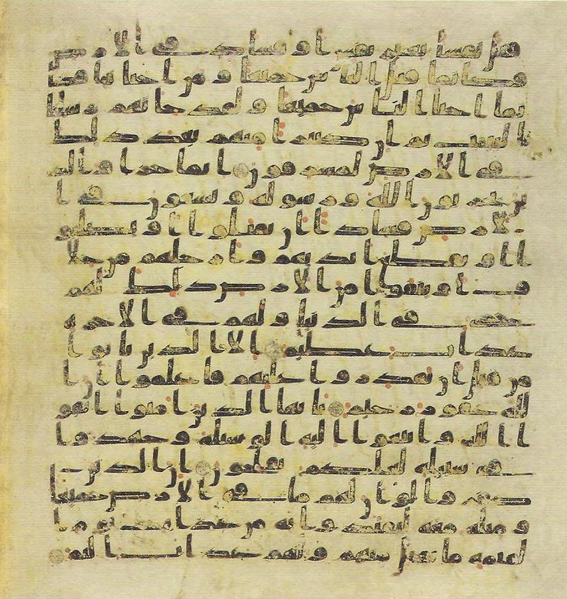 قتل نفسا بغير نفس او فساد فى الارض
فكانما قتل الناس جميعا ومن احياها فكا
نما احيا الناس جميعا ولقد جاتهم رسلنا
بالبينت ثم ان كثيرا منهم بعد ذلك
فى الارض لمسرفون انما جزاوا الذ
ين يحاربون الله ورسوله ويسعون فى ا
لارض فسادا ان يقتلوا او يصلبو
ا او تقطع ايديهم وارجلهم من خلا
ف او ينفوا من الارض ذلك لهم
خزى فى الدنيا ولهم فى الاخرة
عذاب عظيم الا الذين تابوا
من قبل ان تقدروا عليهم فاعلموا ان ا
لله غفور رحيم يايها الذين امنوا اتقو
ا الله وابتغوا اليه الوسيلة وجهدوا
فى سبيله لعلكم تفلحون ان الذين
كفروا لو ان لهم ما فى الارض جميعا
ومثله معه ليفتدوا به من عذاب يوم ا
لقيمة ما تقبل منهم ولهم عذاب اليم